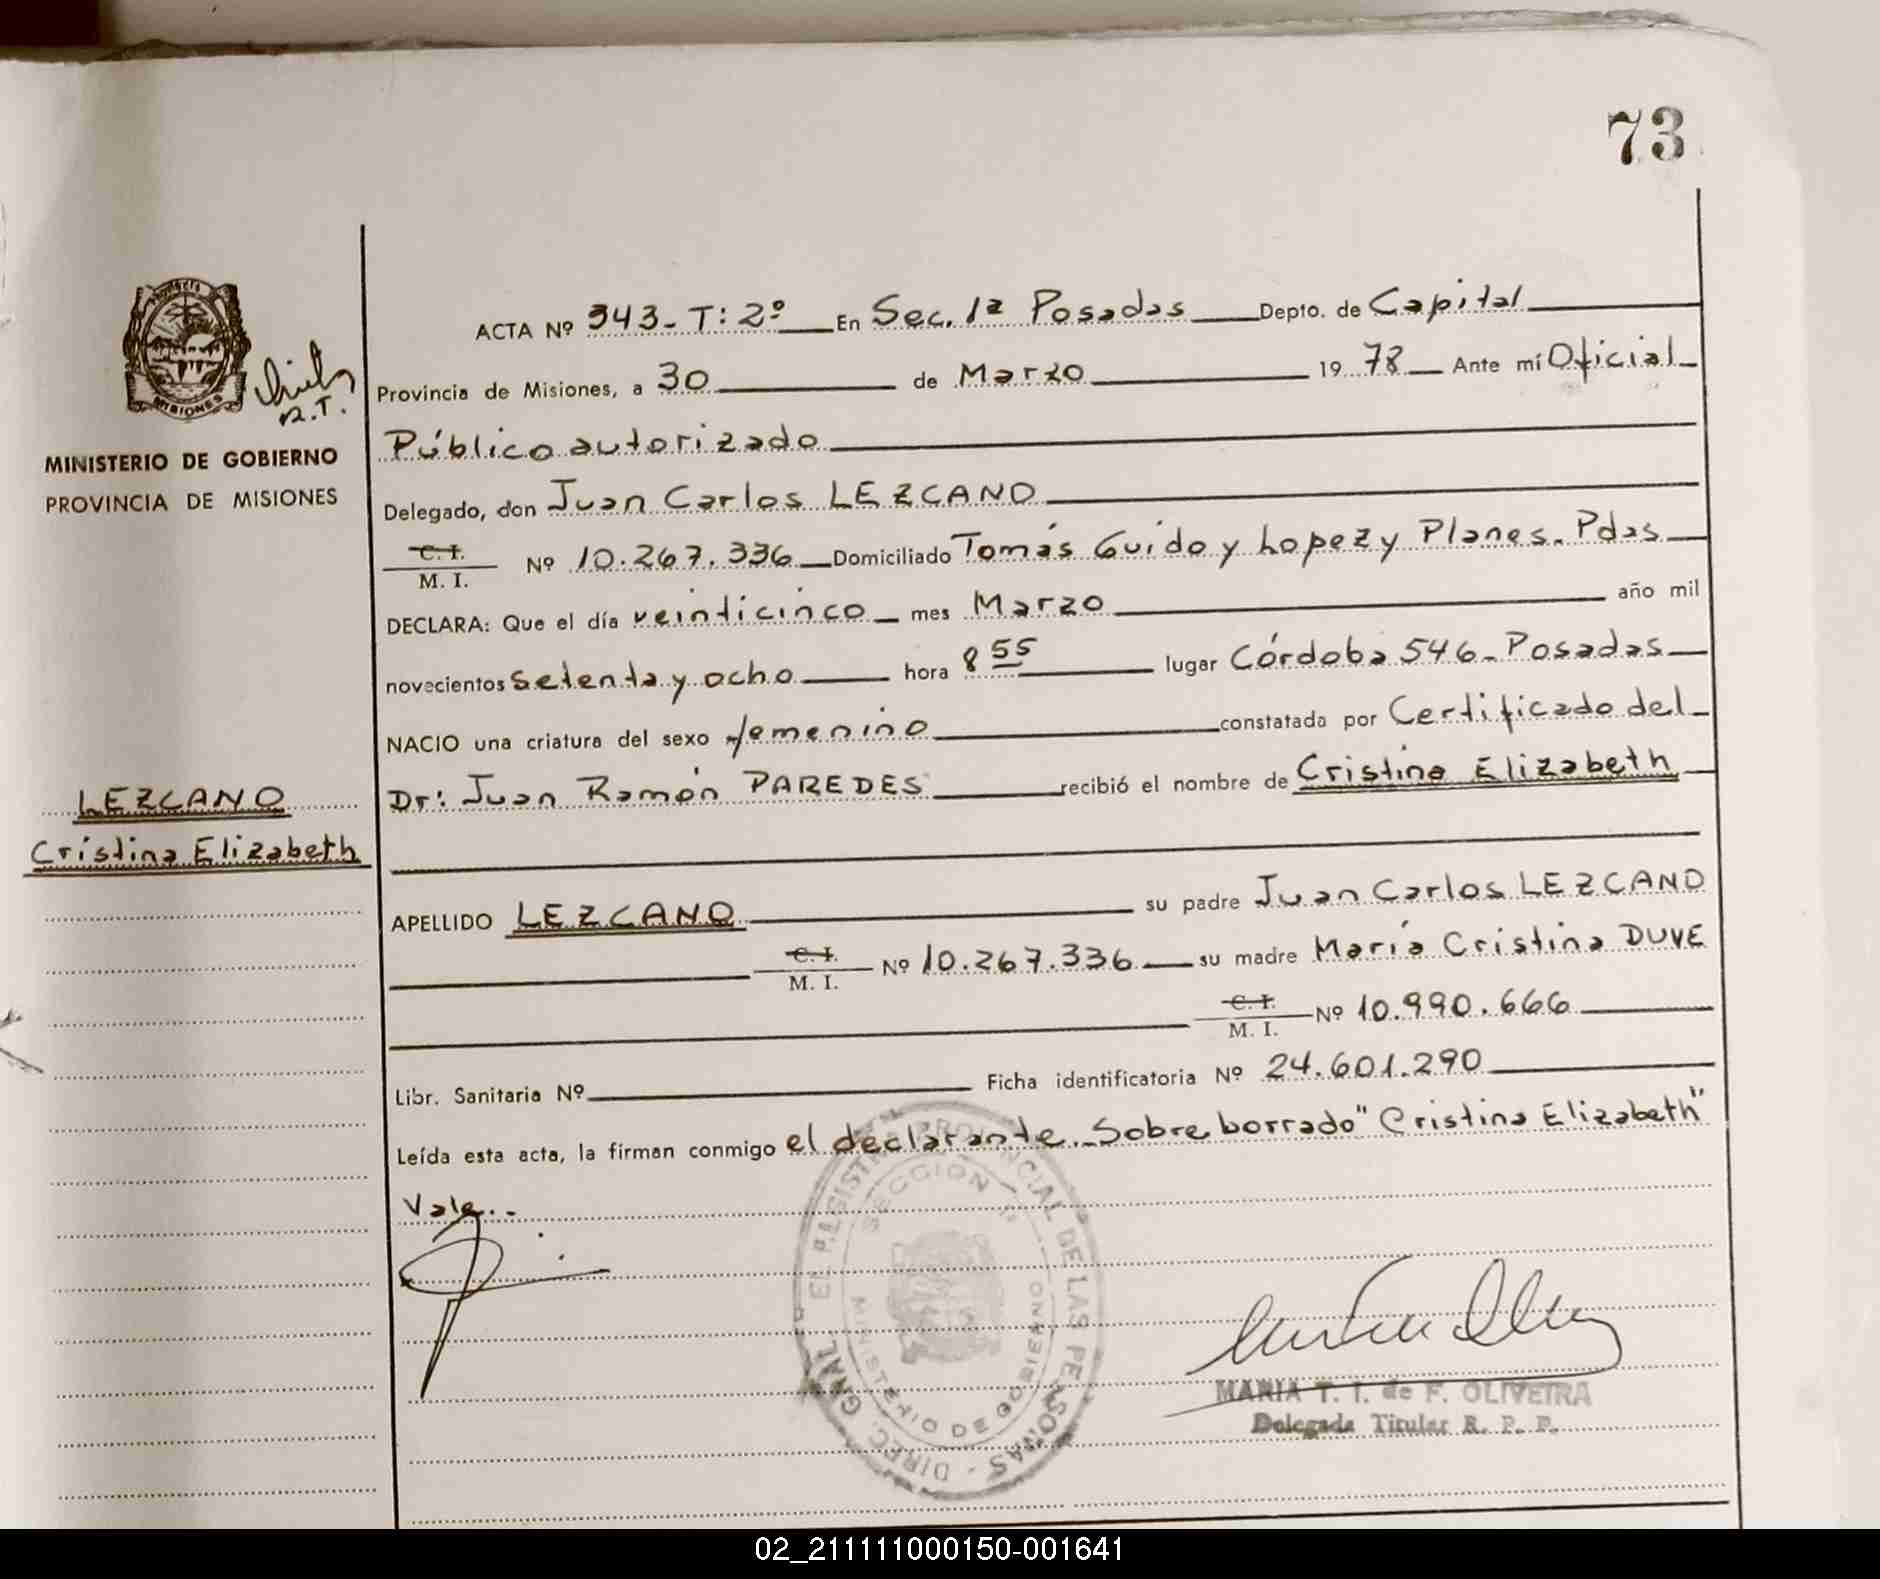 73
PROVINCIA
MISIONES
R.T.
MINISTERIO DE GOBIERNO
PROVINCIA DE MISIONES
LEZCANO
Cristina Elizabeth
ACTA Nº 343- T: 2º En Sec. 1ª Posadas Depto. de Capital
Provincia de Misiones, a 30 de Marzo 19 78 Ante mí Oficial
Público autorizado
Delegado, don Juan Carlos LEZCANO
C. I.
M. I. Nº 10.267.336 Domiciliado Tomás Guido y Lopez y Planes. Pdas
DECLARA: Que el día veinticinco mes Marzo año mil
novecientos setenta y ocho hora 8 55 lugar Córdoba 546- Posadas
NACIO una criatura del sexo femenino constatada por Certificado del
Dr: Juan Ramón PAREDES recibió el nombre de Cristina Elizabeth
APELLIDO LEZCANO su padre Juan Carlos LEZCANO
C. I.
M. I. Nº 10.267.336 su madre María Cristina DUVE
C. I.
M. I. Nº 10.990.666
Libr. Sanitaria Nº Ficha identificatoria Nº 24.601.290
Leída esta acta, la firman conmigo el declarante. Sobreborrado "Cristina Elizabeth"
Vale.-
DIREC. GRAL. EL REGISTRO PROVINCIAL DE LAS PERSONAS
SECCION 1ª
MINISTERIO DE GOBIERNO
MARIA T. I. de F. OLIVEIRA
Delegada Titular R. P. P.
02_211111000150-001641